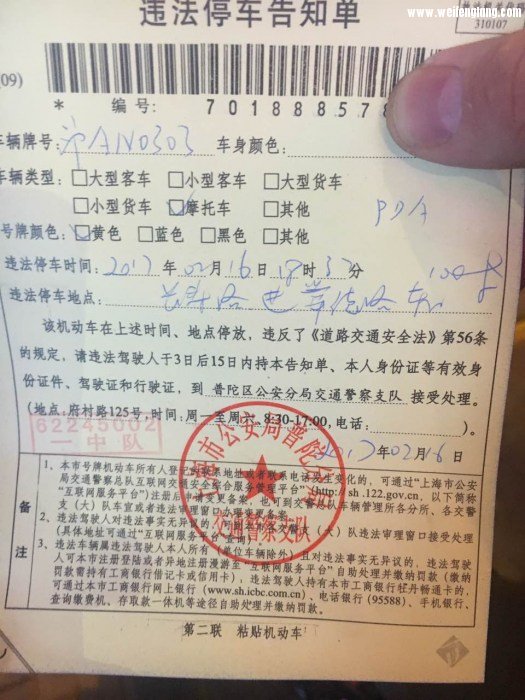 www.weifengtang.com
违法停车告知单
310107
09)
* 编号: 701888578
车辆牌号: 沪AN0303 车身颜色:
车辆类型: □大型客车 □小型客车 □大型货车
□小型货车 □摩托车 □其他 PDA
号牌颜色: □黄色 □蓝色 □黑色 □其他
违法停车时间: 2017年02月16日18时37分
违法停车地点:
该机动车在上述时间、地点停放，违反了《道路交通安全法》第56条
的规定，请违法驾驶人于3日后15日内持本告知单、本人身份证等有效身
份证件、驾驶证和行驶证，到 普陀区公安分局交通警察支队 接受处理。
(地点: 府村路125号，时间: 周一至周六，8:30-17:00，电话:
62245002
一中队
2017年02月16日
市公安局普陀
交通警察支队
备注
1、本市号牌机动车所有人登记的联系地址或者联系电话发生变化的，可通过"上海市公安
局交通警察总队互联网交通安全综合服务管理平台"(http: sh.122.gov.cn，以下简称
"互联网服务平台")注册后申请变更备案，也可到交警总队车辆管理所各分所、各交警
支(大)队车宣或者违法审理窗口办理变更备案。
2、违法驾驶人对违法事实无异议的，可向本市各交警支(大)队违法审理窗口接受处理
(具体地址可通过"互联网服务平台"查询)
3、违法车辆属违法驾驶人本人所有(单位车辆除外)且对违法事实无异议的，违法驾驶
人可本市注册登陆或者异地注册漫游至"互联网服务平台"自助处理并缴纳罚款(缴纳
罚款需持有工商银行借记卡或信用卡)，违法驾驶人持有本市工商银行牡丹畅通卡的，
可通过本市工商银行网上银行(www.sh.icbc.com.cn)、电话银行(95588)、手机银行、
查询缴费机、存取款一体机等途径自助处理并缴纳罚款。
第二联 粘贴机动车